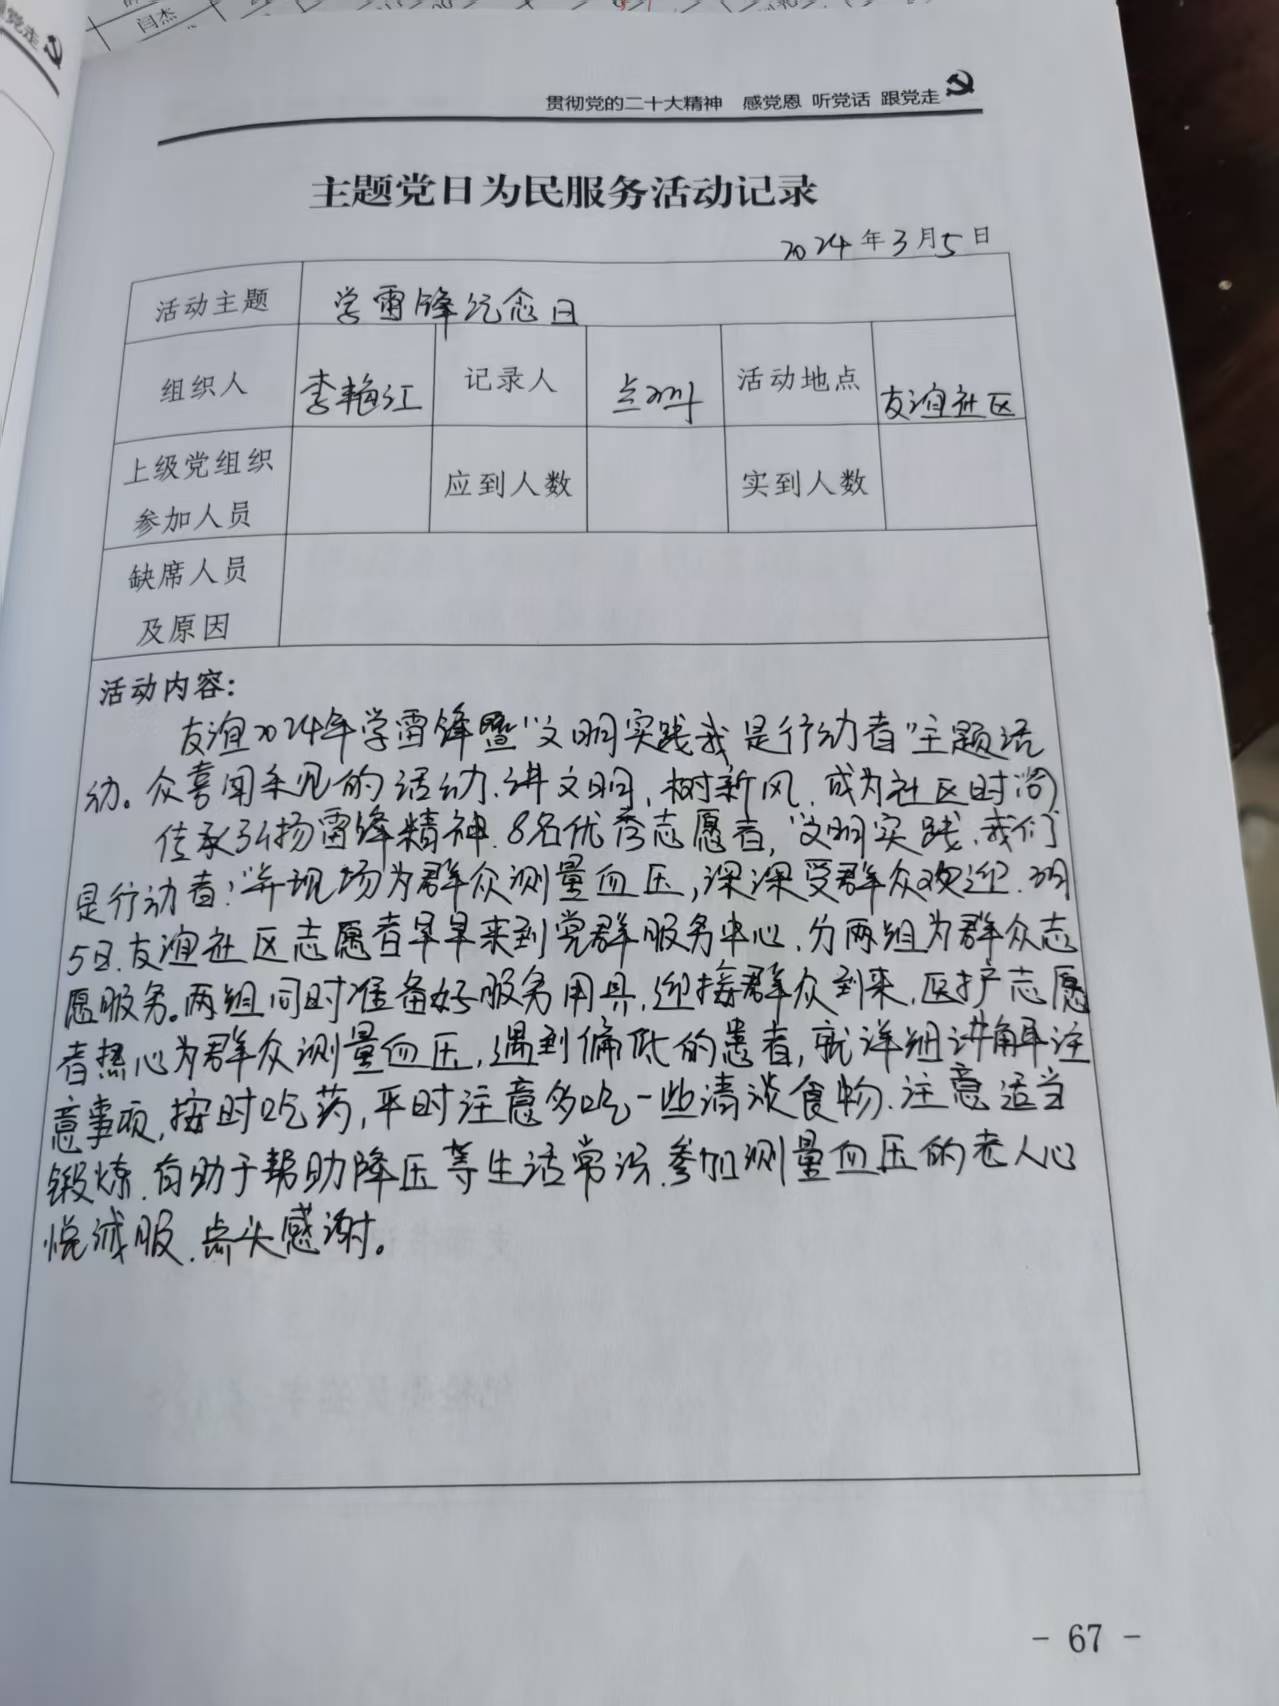 闫杰
党走
贯彻党的二十大精神 感党恩 听党话 跟党走
主题党日为民服务活动记录
2024年3月5日
活动主题 学雷锋纪念日
组织人 李艳江 记录人 活动地点 友谊社区
上级党组织 应到人数 实到人数
参加人员
缺席人员
及原因
活动内容：
友谊2024年学雷锋暨“文明实践我是行动者”主题活
动。众喜闻乐见的活动、讲文明，树新风，成为社区时尚
传承弘扬雷锋精神.8名优秀志愿者,“文明实践,我们
是行动者!”并现场为群众测量血压,深深受群众欢迎.3月
5日.友谊社区志愿者早早来到党群服务中心.分两组为群众志
愿服务。两组同时准备好服务用具,迎接群众到来,医护志愿
者热心为群众测量血压,遇到偏低的患者,就详细讲解注
意事项,按时吃药,平时注意多吃一些清淡食物.注意适当
锻炼.有助于帮助降压等生活常识.参加测量血压的老人心
悦诚服.点头感谢。
- 67 -